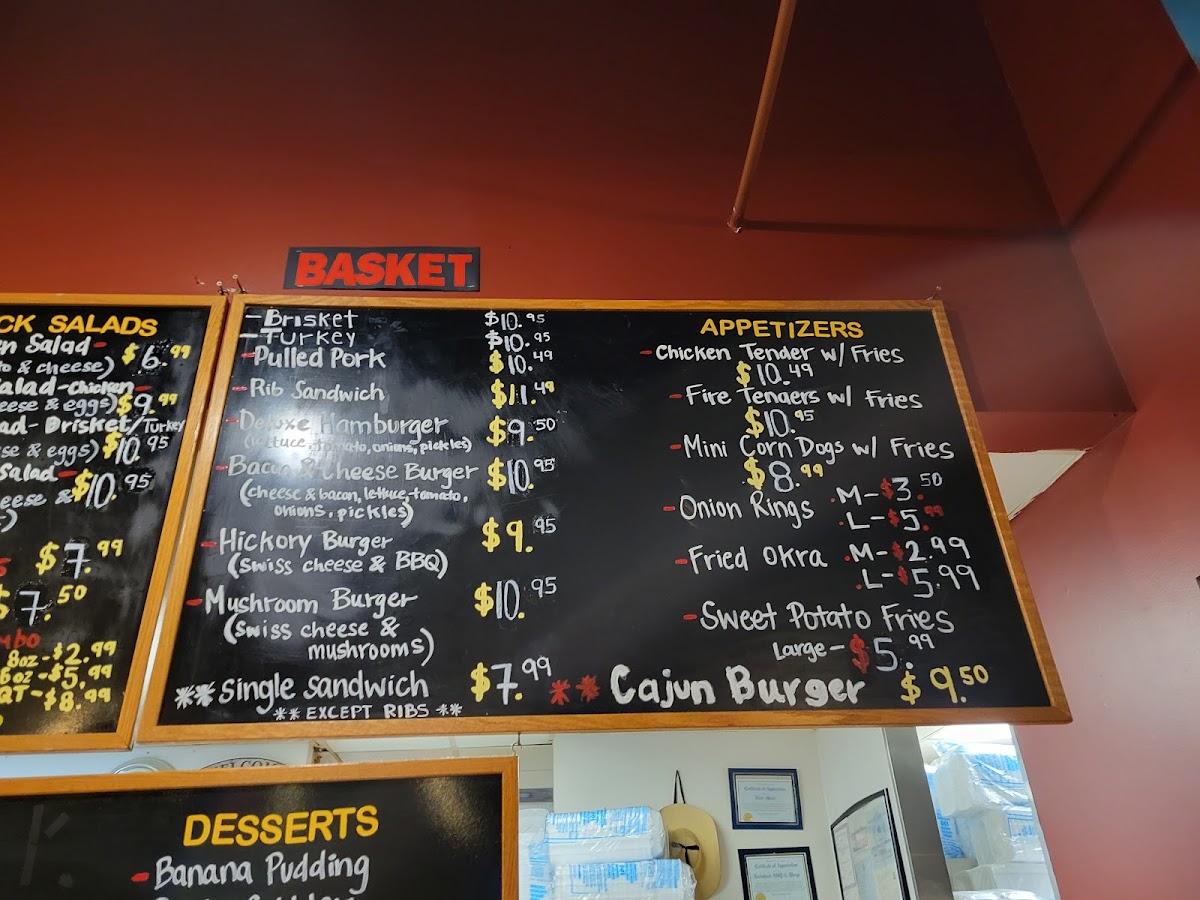 BASKET
CK SALADS
n Salad -
o & cheese) $6.99
alad - Chicken -
eese & eggs) $9.99
ad - Brisket/Turkey
se & eggs) $10.95
Salad -
eese & $10.95
$7.99
$7.50
mbo
8oz - $2.99
6oz - $5.99
QT - $8.99
- Brisket $10.95
- Turkey $10.95
- Pulled Pork $10.49
- Rib Sandwich $11.49
- Deluxe Hamburger $9.50
(lettuce, tomato, onions, pickles)
- Bacon & Cheese Burger $10.95
(cheese & bacon, lettuce, tomato,
onions, pickles)
- Hickory Burger $9.95
(Swiss cheese & BBQ)
- Mushroom Burger $10.95
(Swiss cheese &
mushrooms)
** Single Sandwich $7.99
** EXCEPT RIBS **
APPETIZERS
- Chicken Tender w/ Fries
$10.49
- Fire Tenders w/ Fries
$10.95
- Mini Corn Dogs w/ Fries
$8.99
- Onion Rings .M - $3.50
.L - $5.99
- Fried Okra .M - $2.99
.L - $5.99
- Sweet Potato Fries
Large - $5.99
** Cajun Burger $9.50
DESSERTS
- Banana Pudding
Certificate of Appreciation
Certificate of Appreciation